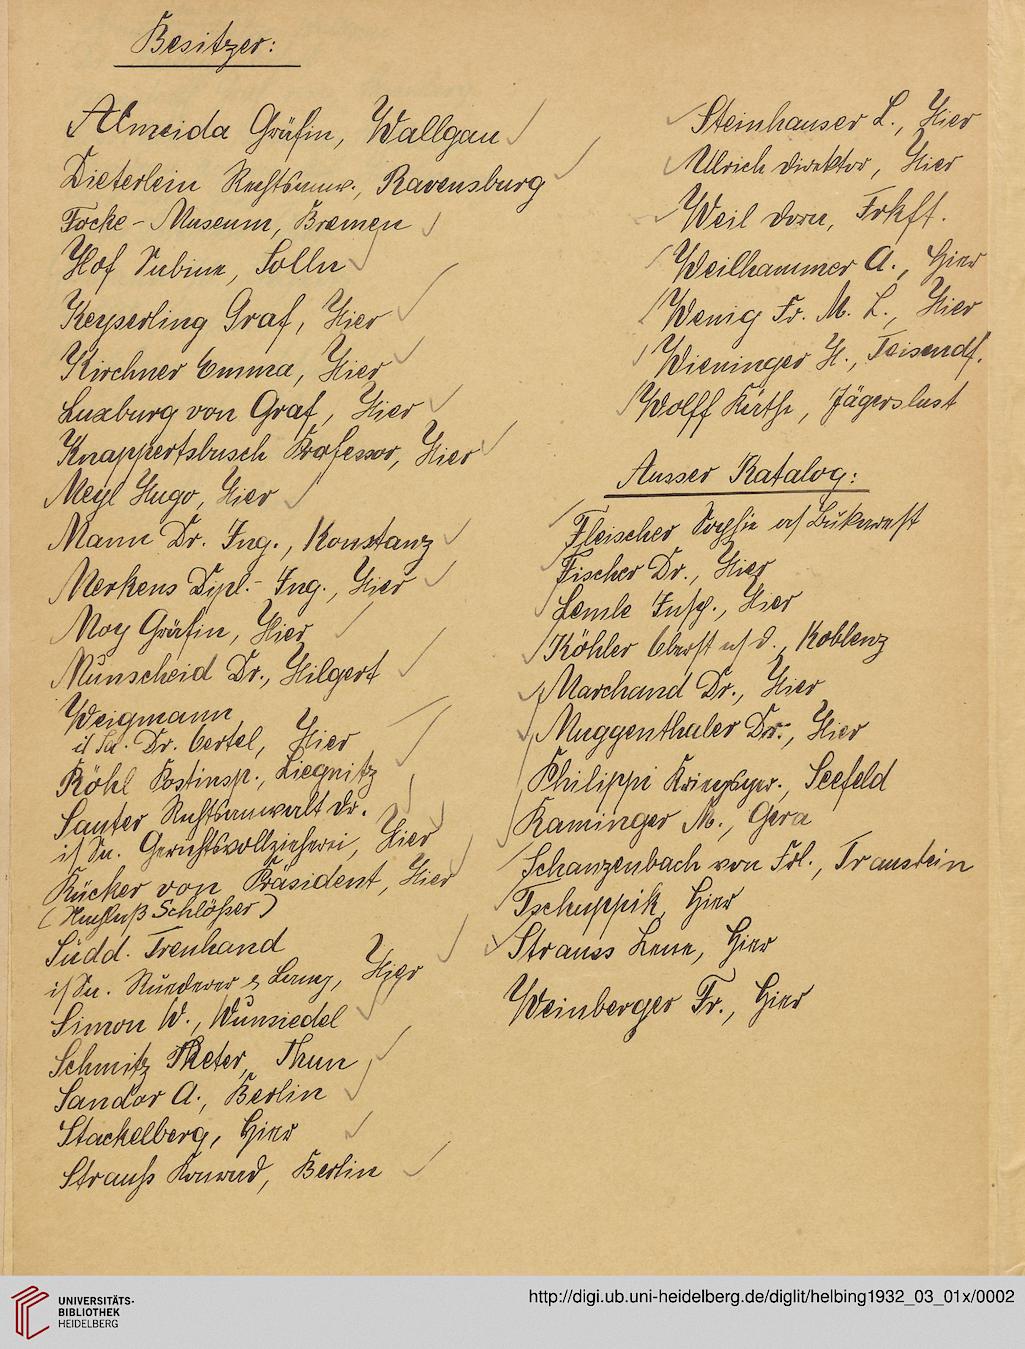 Besitzer:
Almeida Gräfin, Wallgau
Dieterlein Rechtsanw., Ravensburg
Focke-Museum, Bremen
Hof Sabine, Solln
Keyserling Graf, Hier
Kirchner Emma, Hier
Luxburg von Graf, Hier
Knappertsbusch Professor, Hier
Meyl Hugo, Hier
Mann Dr. Ing., Konstanz
Merkens Dipl.-Ing., Hier
Moy Gräfin, Hier
Münscheid Dr., Hilgert
Weigmann,
i/ Sa. Dr. Oertel, Hier
Röhl Postinsp., Liegnitz
Sauter Rechtsanwalt Dr.
i/ Sa. Gerichtsvollzieherei, Hier
Rücker von Präsident, Hier
(Nachlaß Schlößer)
Südd. Treuhand
i/ Sa. Ruederer & Lang, Hier
Simon W., Wunsiedel
Schmitz Peter, Thun
Sandor A., Berlin
Stackelberg, Hier
Strauß Konrad, Berlin
Steinhauser L., Hier
Ullrich Direktor, Hier
Weil Dora, Frkft.
Weilhammer A., Hier
Wenig Fr. M. L., Hier
Wieninger H., Teisendf.
Wolff Käthe, Jägerslust
Ausser Katalog:
Fleischer Sophie a/ Bukarest
Fischer Dr., Hier
Lemle Insp., Hier
Köhler Oberst a/ d., Koblenz
Marchand Dr., Hier
Muggenthaler Dr., Hier
Philippi Kriegsger., Seefeld
Raminger M., Gera
Schanzenbach von Frl., Traunstein
Tschuppik, Hier
Strauss Lene, Hier
Weinberger Fr., Hier
UNIVERSITÄTS-
BIBLIOTHEK
HEIDELBERG
http://digi.ub.uni-heidelberg.de/diglit/helbing1932_03_01x/0002